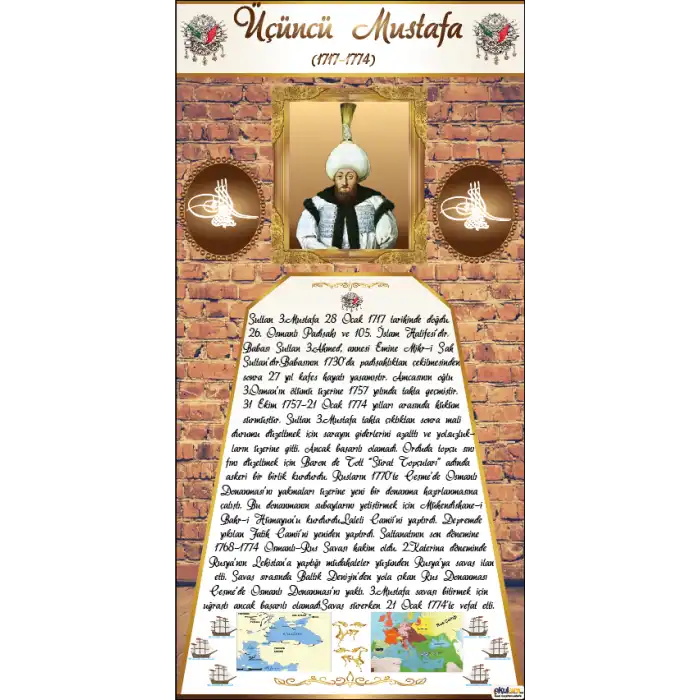 Üçüncü Mustafa
(1717-1774)
Sultan 3.Mustafa 28 Ocak 1717 tarihinde doğdu.
26. Osmanlı Padişahı ve 105. İslam Halifesi'dir.
Babası Sultan 3.Ahmed, annesi Emine Mihr-i Şah
Sultan'dır.Babasının 1730'da padişahlıktan çekilmesinden
sonra 27 yıl kafes hayatı yaşamıştır. Amcasının oğlu
3.Osman'ın ölümü üzerine 1757 yılında tahta geçmiştir.
31 Ekim 1757-21 Ocak 1774 yılları arasında hüküm
sürmüştür. Sultan 3.Mustafa tahta çıktıktan sonra mali
durumu düzeltmek için sarayın giderlerini azalttı ve yolsuzluk-
ların üzerine gitti. Ancak başarılı olamadı. Orduda topçu sını
fını düzeltmek için Baron de Tott "Sürat Topçuları" adında
askeri bir birlik kurdurdu. Rusların 1770'te Çeşme'de Osmanlı
Donanması'nı yakmaları üzerine yeni bir donanma hazırlanmasına
çalıştı. Bu donanmanın subaylarını yetiştirmek için Mühendishane-i
Bahr-i Hümayun'u kurdurdu.Laleli Camii'ni yaptırdı. Depremde
yıkılan Fatih Camii'ni yeniden yaptırdı. Saltanatının son dönemine
1768-1774 Osmanlı-Rus Savaşı hakim oldu. 2.Katerina döneminde
Rusya'nın Lehistan'a yaptığı müdahaleler yüzünden Rusya'ya savaş ilan
etti. Savaş sırasında Baltık Denizi'nden yola çıkan Rus Donanması
Çeşme'de Osmanlı Donanması'nı yaktı. 3.Mustafa savaşı bitirmek için
uğraştı ancak başarılı olamadı.Savaş sürerken 21 Ocak 1774'te vefat etti.